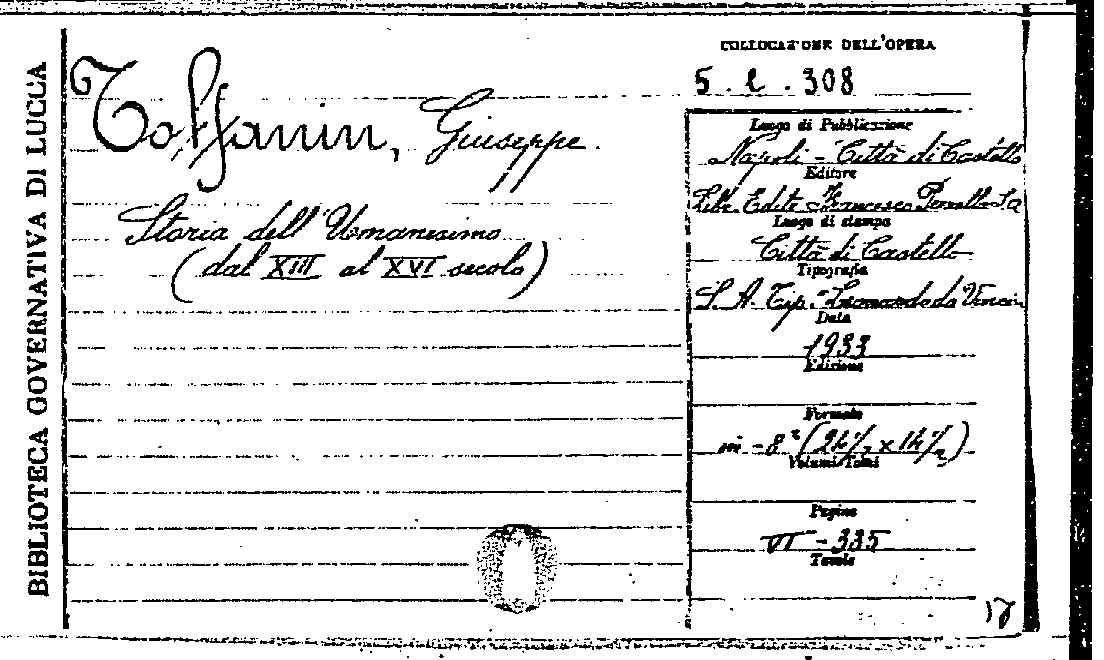 BIBLIOTECA GOVERNATIVA DI LUCCA
Toffanin, Giuseppe.
Storia dell'Umanesimo
(dal XIII al XVI secolo)
COLLOCAZIONE DELL'OPERA
5. l. 308
Luogo di Pubblicazione
Napoli - Città di Castello
Editore
Libr. Editr. Francesco Perrella S.A
Luogo di stampa
Città di Castello
Tipografia
S. A. Tip. "Leonardo da Vinci"
Data
1933
Edizione
Formato
in - 8° (24½ x 14½)
Volumi/Tomi
Pagine
VI - 335
Tavole